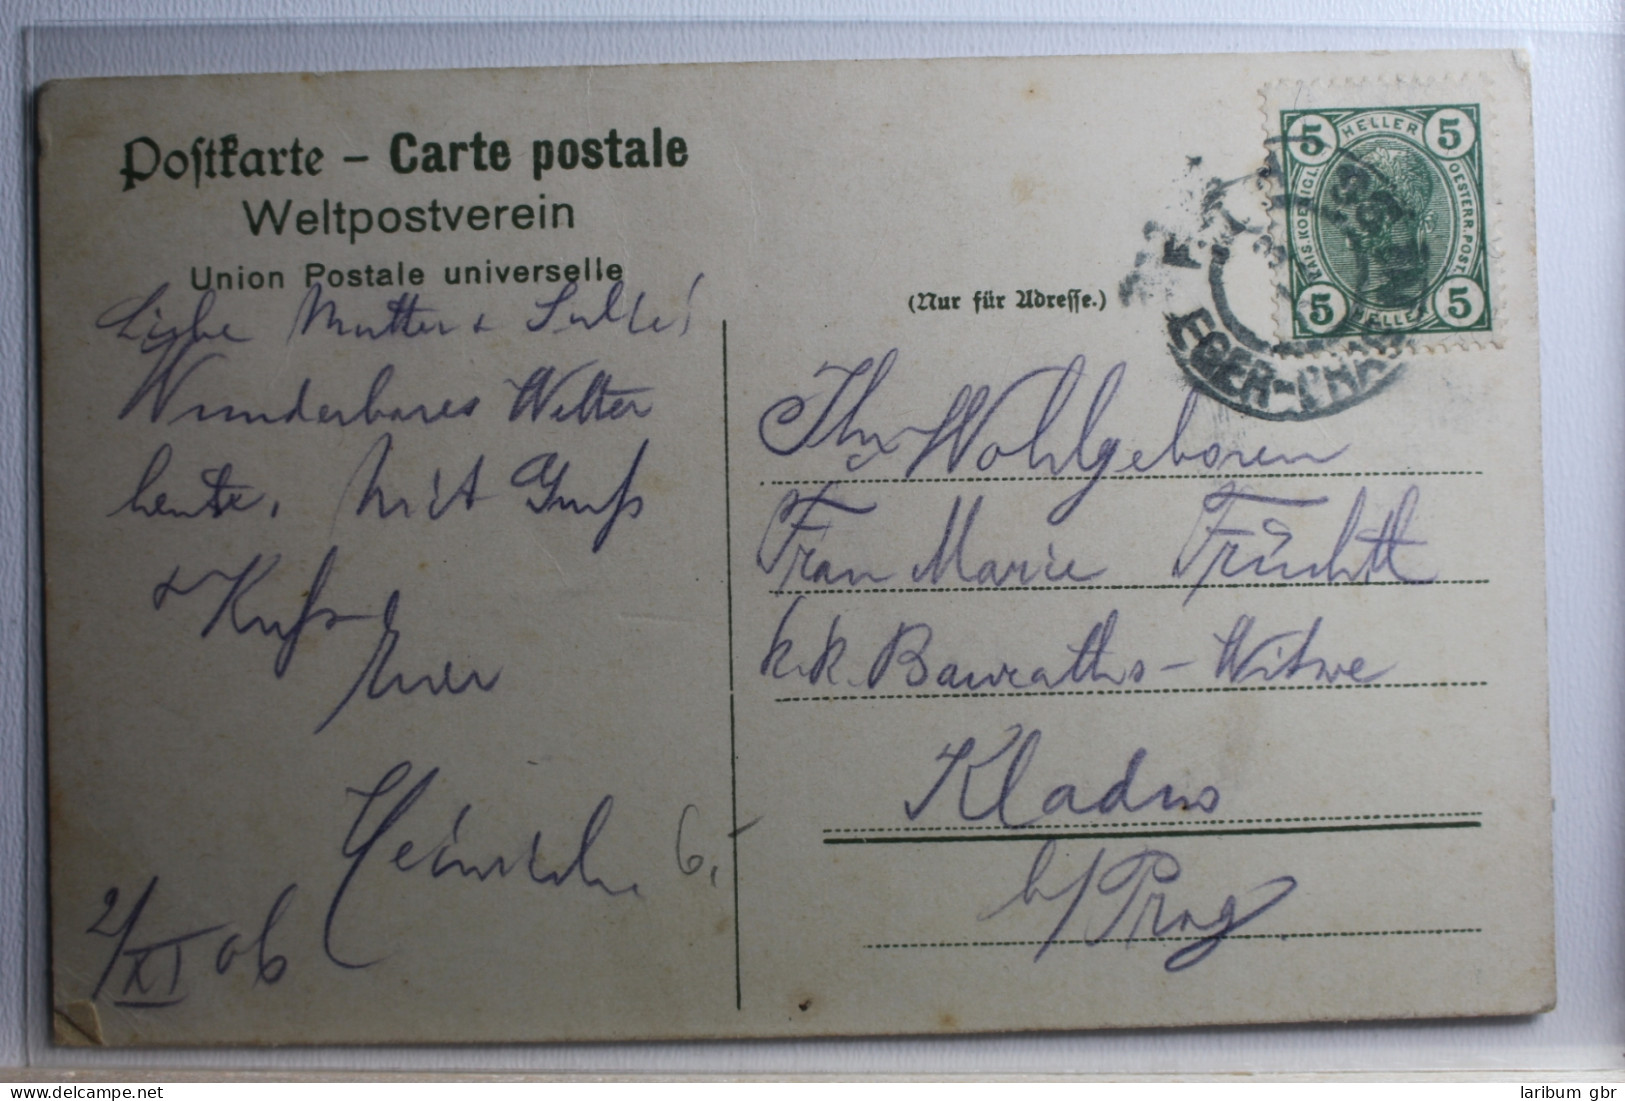 Postkarte – Carte postale
Weltpostverein
Union Postale universelle
(Nur für Adresse.)
5 HELLER 5
KAIS. KOENIGL. OESTERR. POST.
5 HELLER 5
EGER-
Liebe Mutter &
Wunderbares Wetter
heute. Mit Gruß
& Kuß
Euer
Heinrich
2/XI 06
6,-
Ihr Wohlgeboren
Frau Marie Früchtl
k. k. Bauraths-Witwe
Kladno
b/Prag
laribum gbr